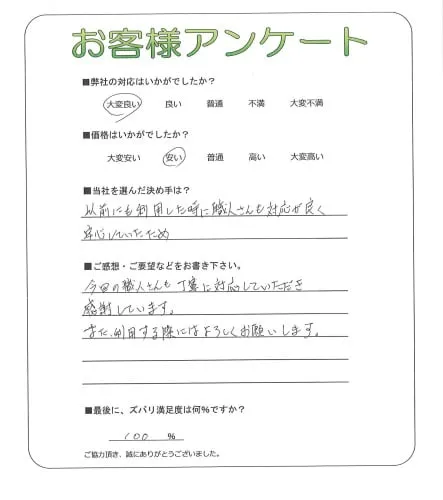 お客様アンケート
■弊社の対応はいかがでしたか？
大変良い 良い 普通 不満 大変不満
■価格はいかがでしたか？
大変安い 安い 普通 高い 大変高い
■当社を選んだ決め手は？
以前にも利用した時に職人さんも対応が良く
安心していたため
■ご感想・ご要望などをお書き下さい。
今回の職人さんも丁寧に対応していただき
感謝しています。
また、利用する際にはよろしくお願いします。
■最後に、ズバリ満足度は何%ですか？
100 %
ご協力頂き、誠にありがとうございました。